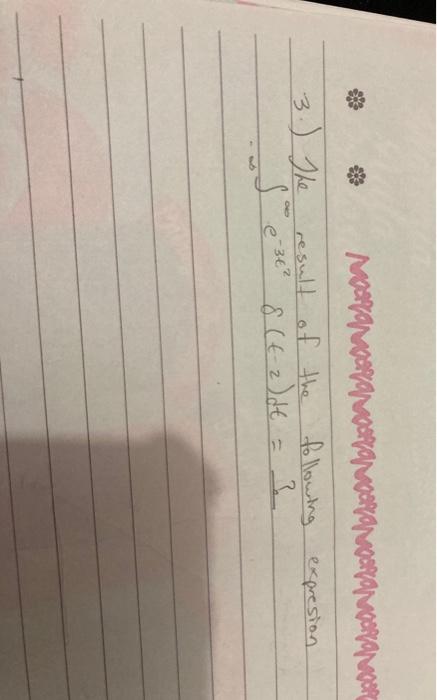 3.) The result of the following expresion
∫_{-∞}^{∞} e^{-3t²} δ(t-2)dt = ?